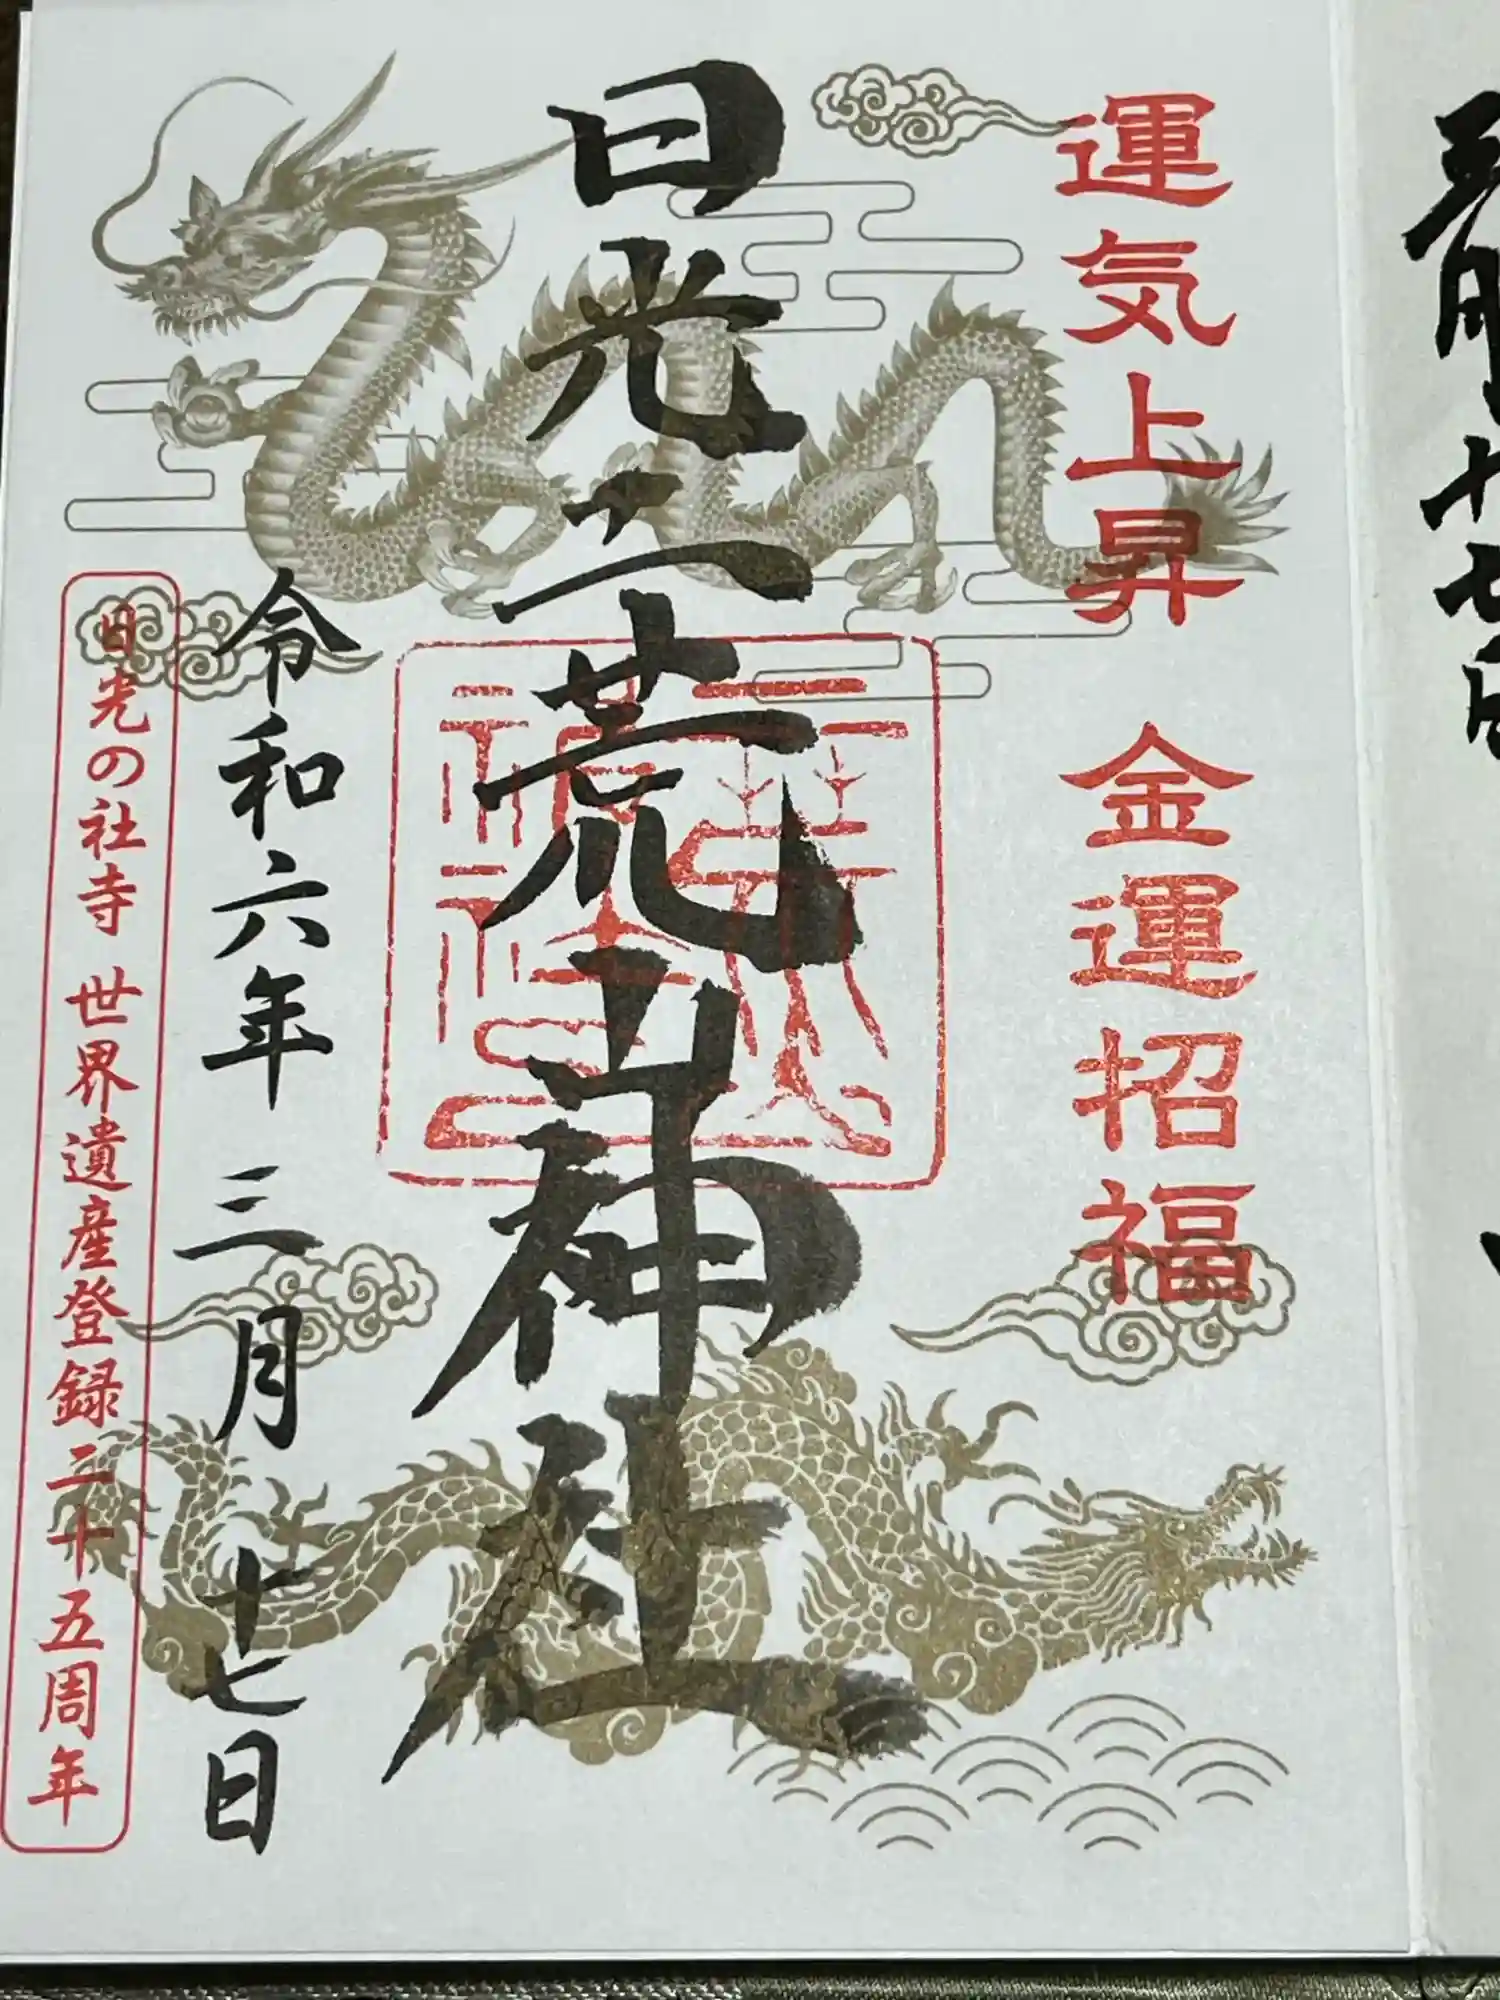 運気上昇 金運招福
日光二荒山神社
令和六年 三月 十七日
日光の社寺 世界遺産登録二十五周年